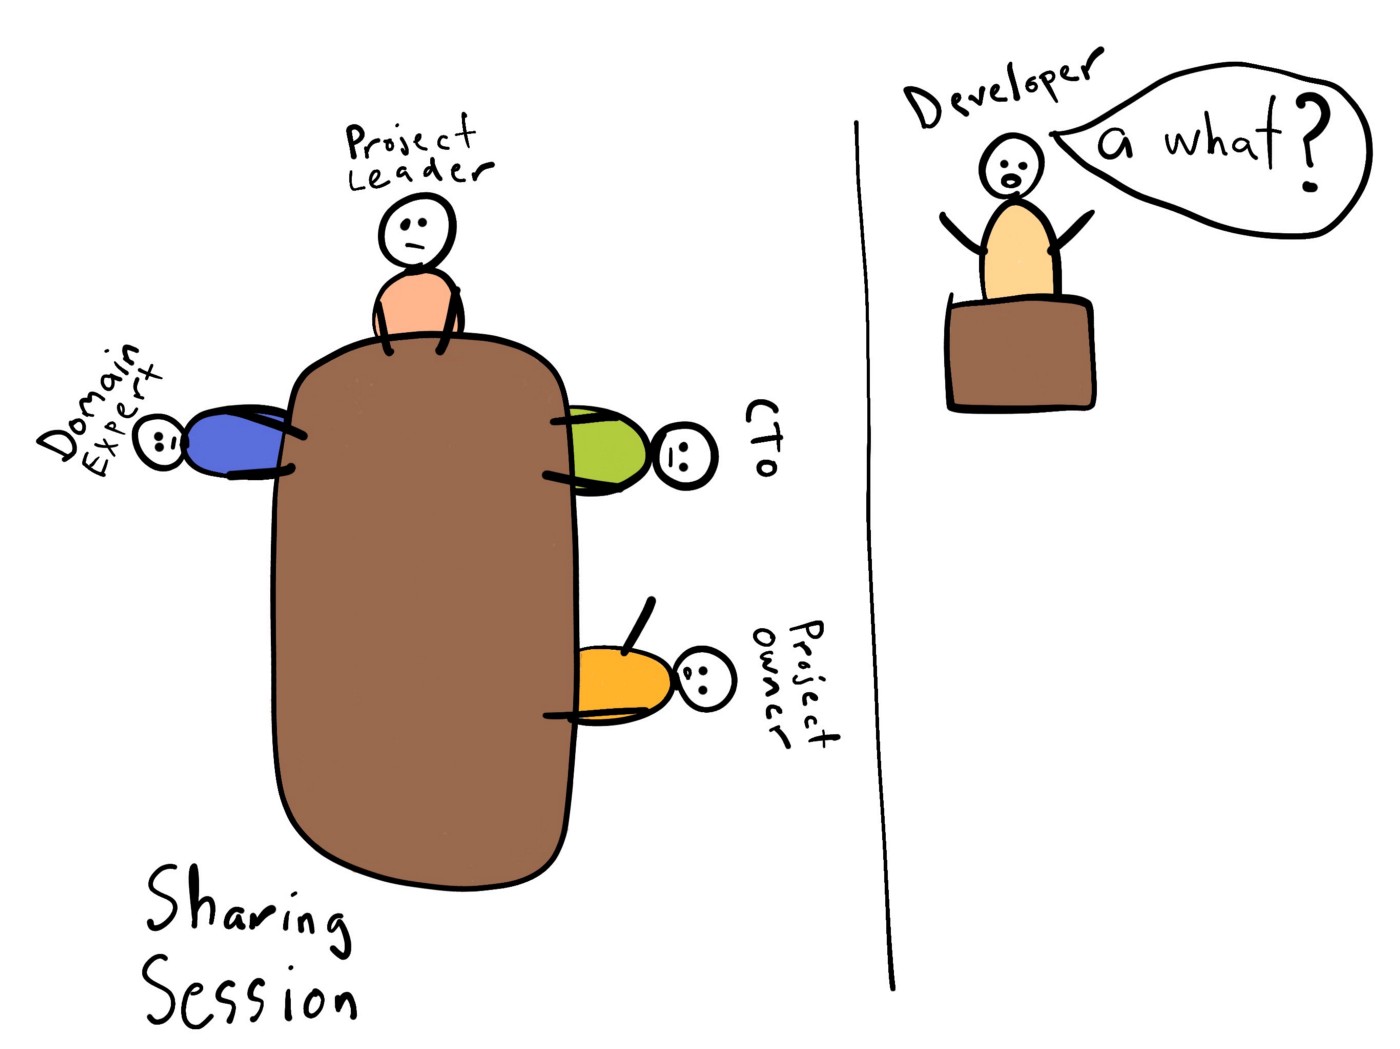 Project
Leader
Domain
Expert
CTO
Project
owner
Sharing
Session
Developer
a what?